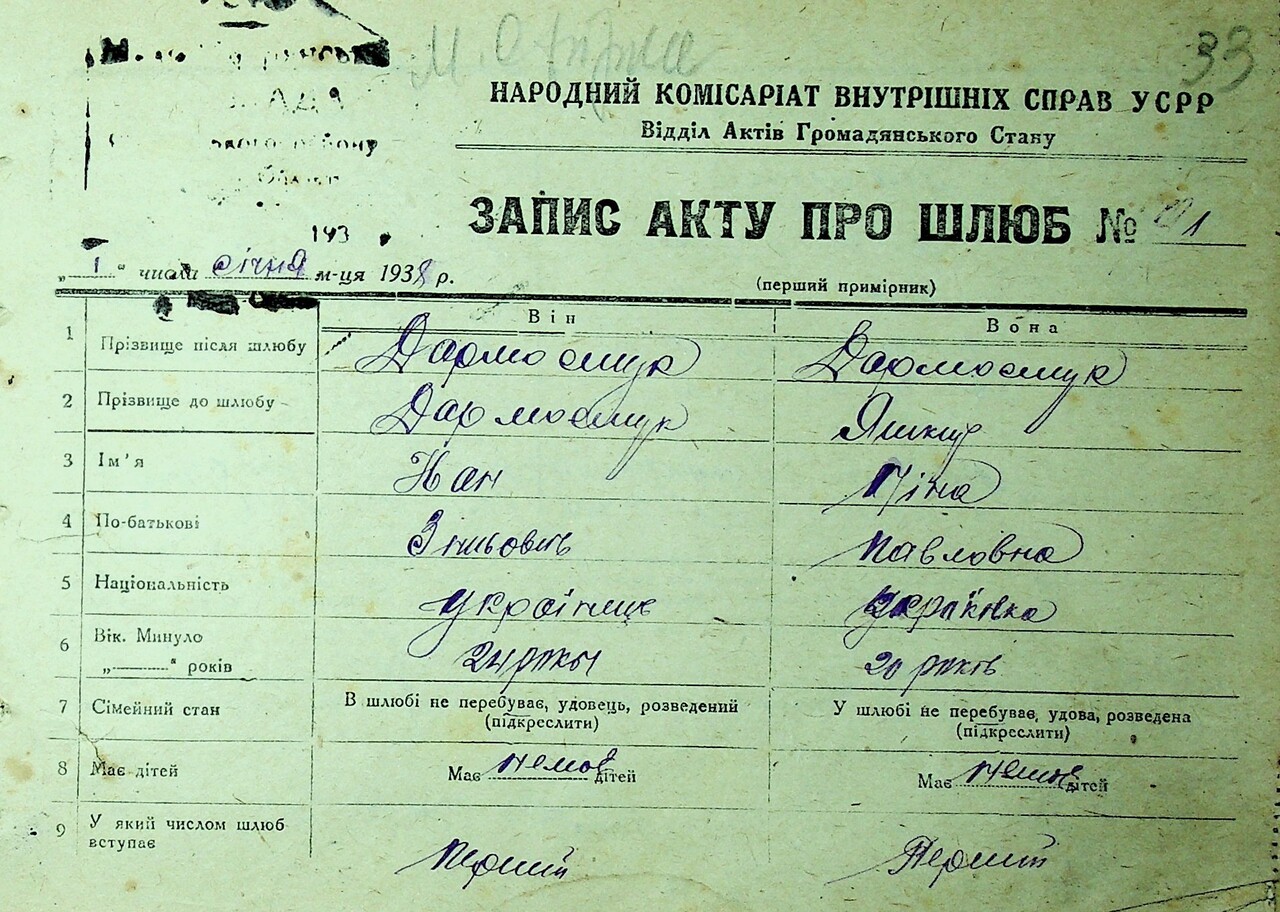 33
НАРОДНИЙ КОМІСАРІАТ ВНУТРІШНІХ СПРАВ УСРР
Відділ Актів Громадянського Стану
ЗАПИС АКТУ ПРО ШЛЮБ №
193
„1“ числа січня м-ця 1938 р.
(перший примірник)
Він Вона
1 Прізвище після шлюбу Дармостук Дармостук
2 Прізвище до шлюбу Дармостук
3 Ім'я
4 По-батькові Павловна
5 Національність українець
6 Вік. Минуло
„ “ років 24 роки 20 років
7 Сімейний стан В шлюбі не перебуває, удовець, розведений У шлюбі не перебуває, удова, розведена
(підкреслити) (підкреслити)
8 Має дітей Має немає дітей Має немає дітей
9 У який числом шлюб
вступає Перший Перший